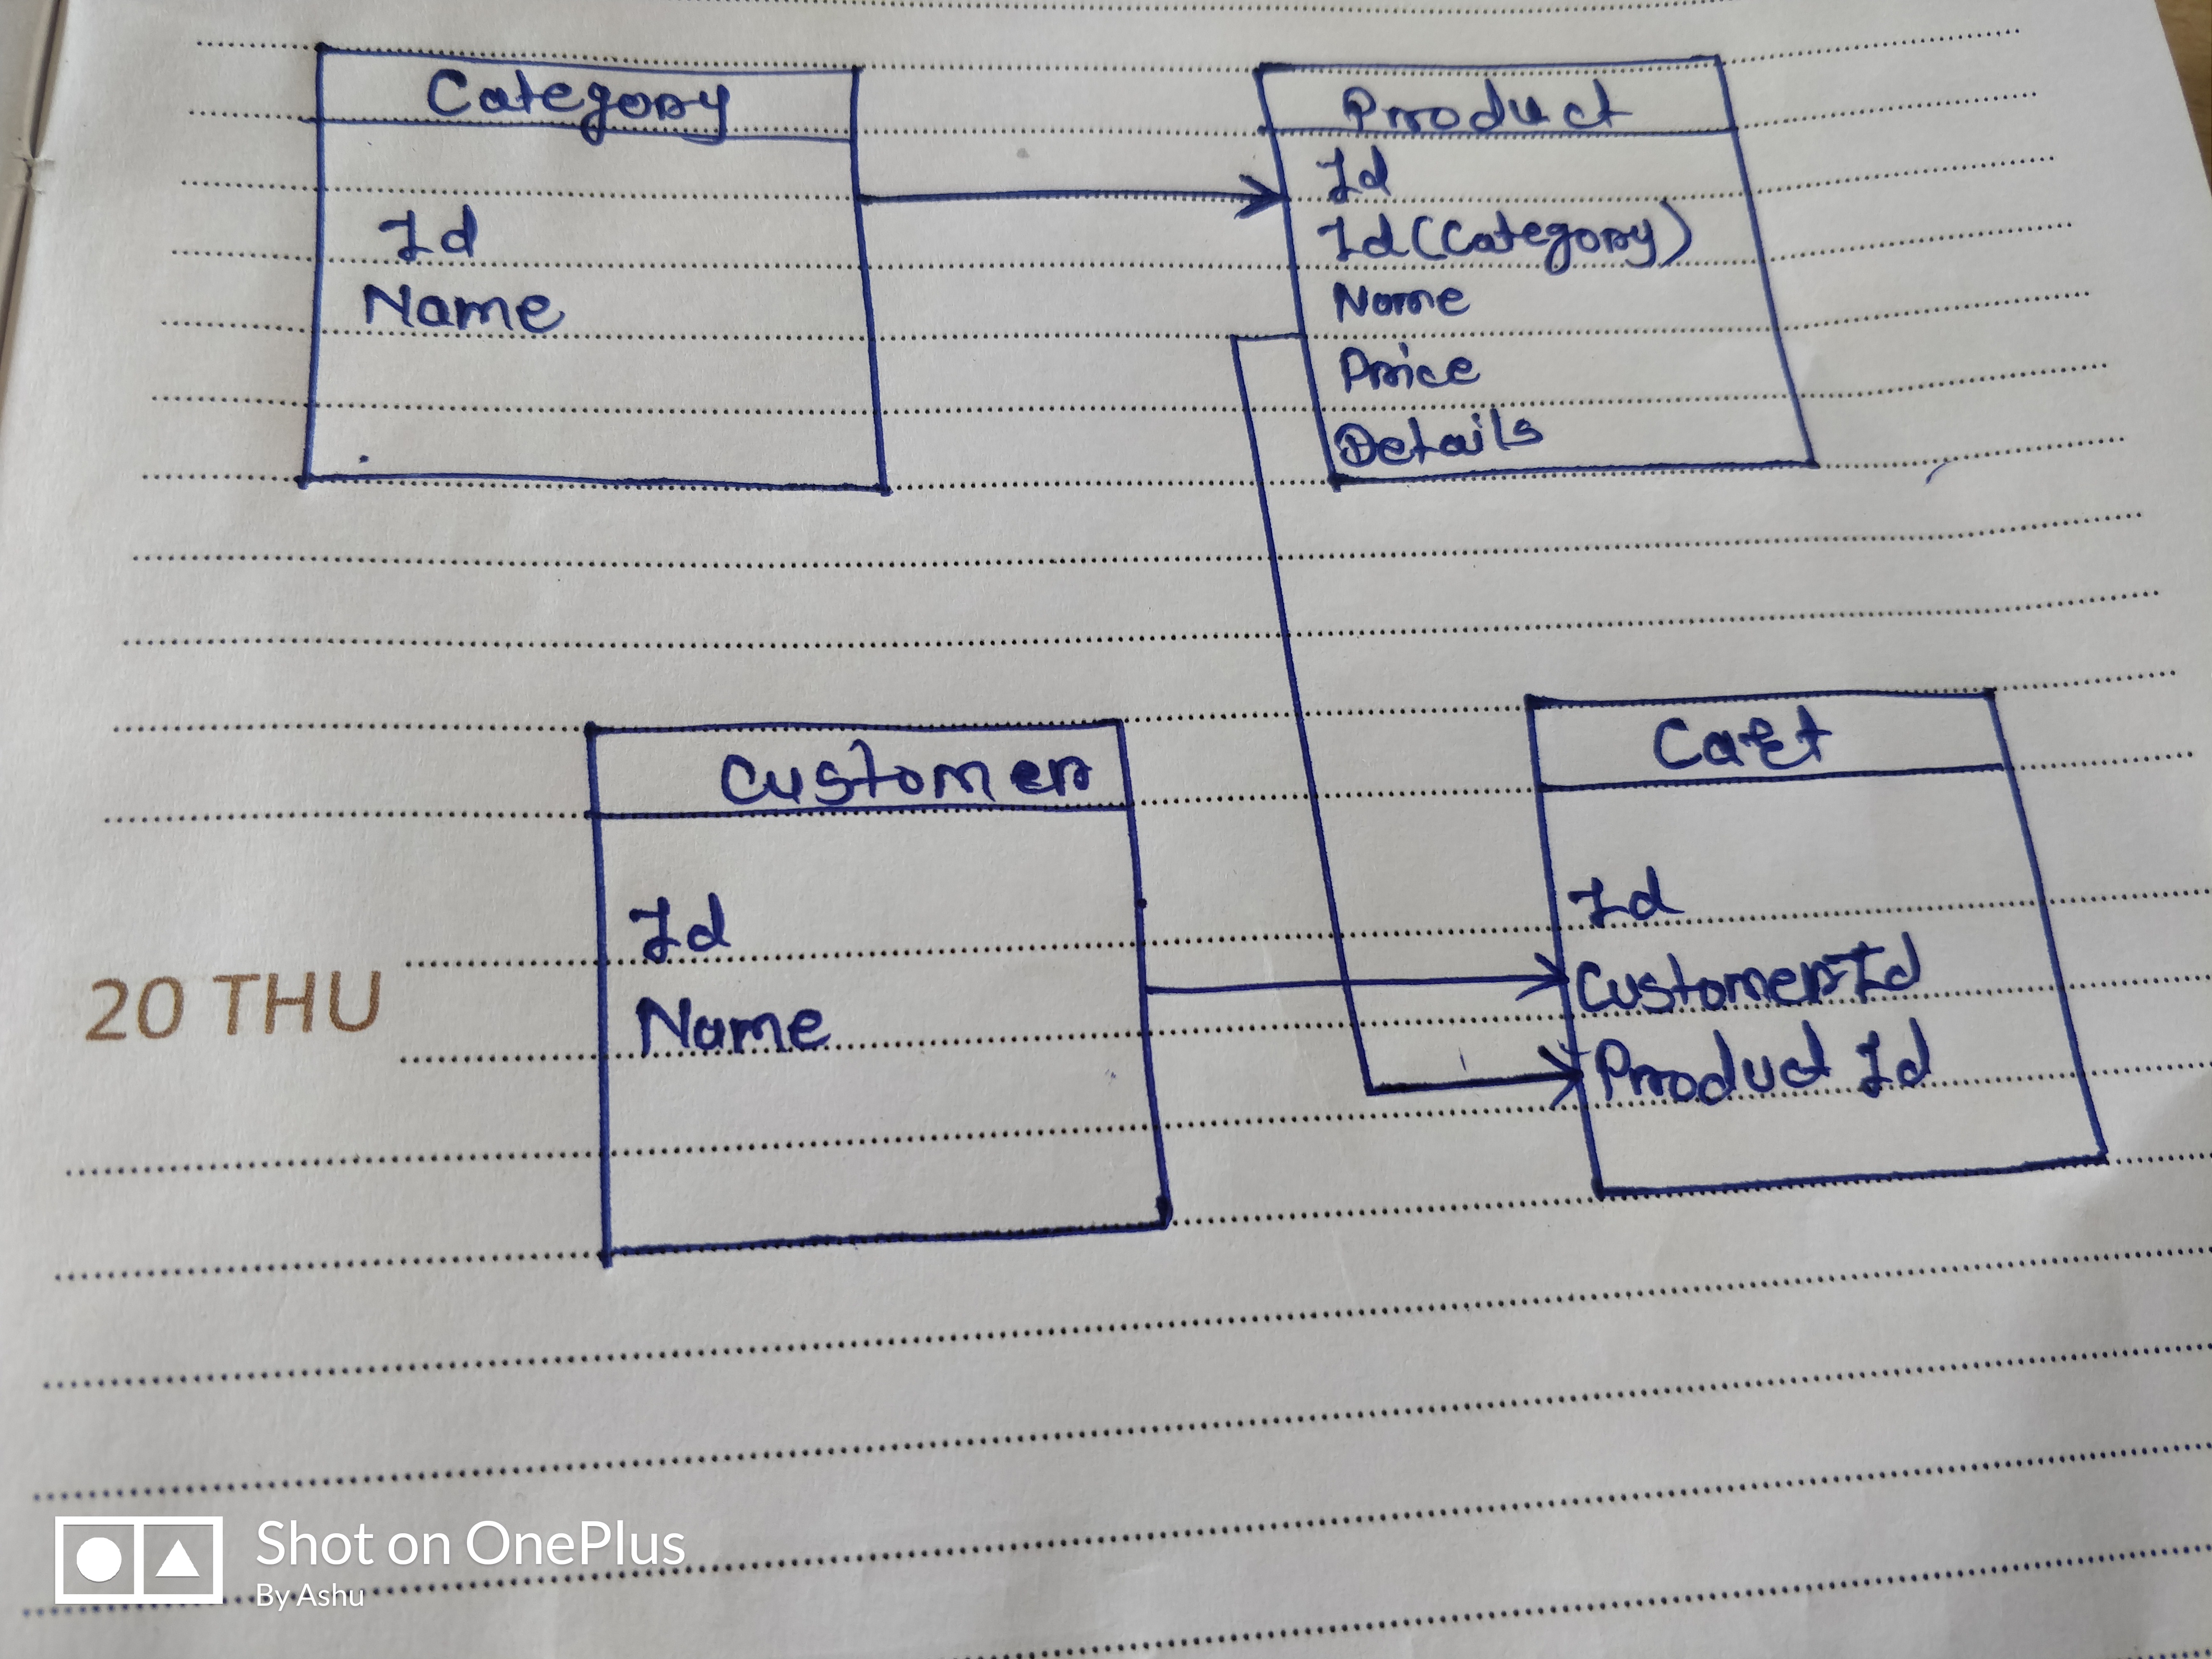 Category
Id
Name
Product
Id
Id (Category)
Name
Price
Details
Customer
Id
Name
Cart
Id
Customer Id
Product Id
20 THU
Shot on OnePlus
By Ashu